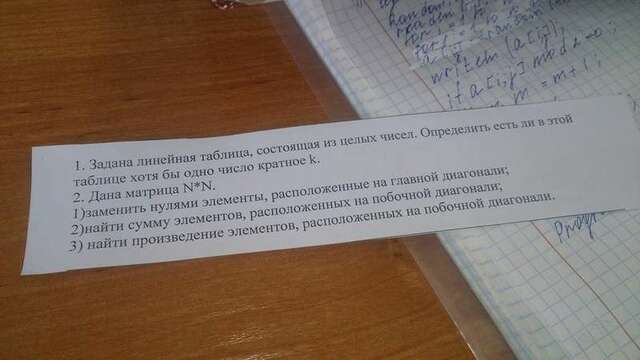 1. Задана линейная таблица, состоящая из целых чисел. Определить есть ли в этой
таблице хотя бы одно число кратное k.
2. Дана матрица N*N.
1)заменить нулями элементы, расположенные на главной диагонали;
2)найти сумму элементов, расположенных на побочной диагонали;
3) найти произведение элементов, расположенных на побочной диагонали.
writeln (a[i,j]);
if a[i,j] mod 2=0;
m = m+1;